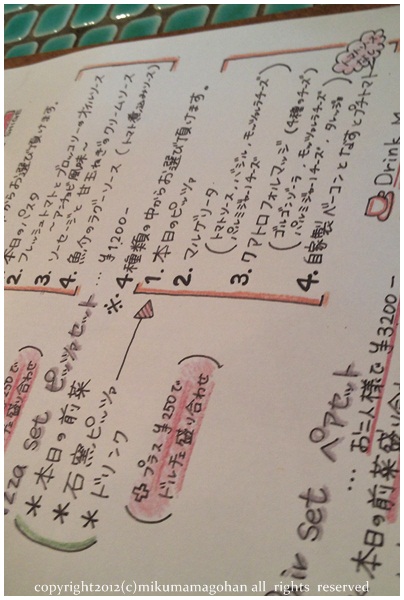 からお選び頂けます。
2. 本日のパスタ
フレッシュトマトとブロッコリーのオイルソース
～アンチョビ風味～
3. ソーセージと甘玉ねぎのクリームソース
4. 魚介のラグーソース (トマト煮込みソース)
zza Set ピッツァセット … ¥1,200-
* 本日の前菜
* 石窯ピッツァ
* ドリンク
※ 4種類の中からお選び頂けます。
1. 本日のピッツァ
2. マルゲリータ
(トマトソース・バジル・モッツァレラチーズ
パルミジャーノチーズ)
3. クアトロフォルマッジ (4種のチーズ)
(ゴルゴンゾーラ・モッツァレラチーズ
パルミジャーノチーズ・タレッジョ)
4. 自家製ベーコンとなすとプチトマト
(プラス¥250で
ドルチェ盛り合わせ)
air Set ペアセット
… お二人様で ¥3200-
本日の前菜盛り合
Drink
copyright2012(c)mikumamagohan all rights reserved